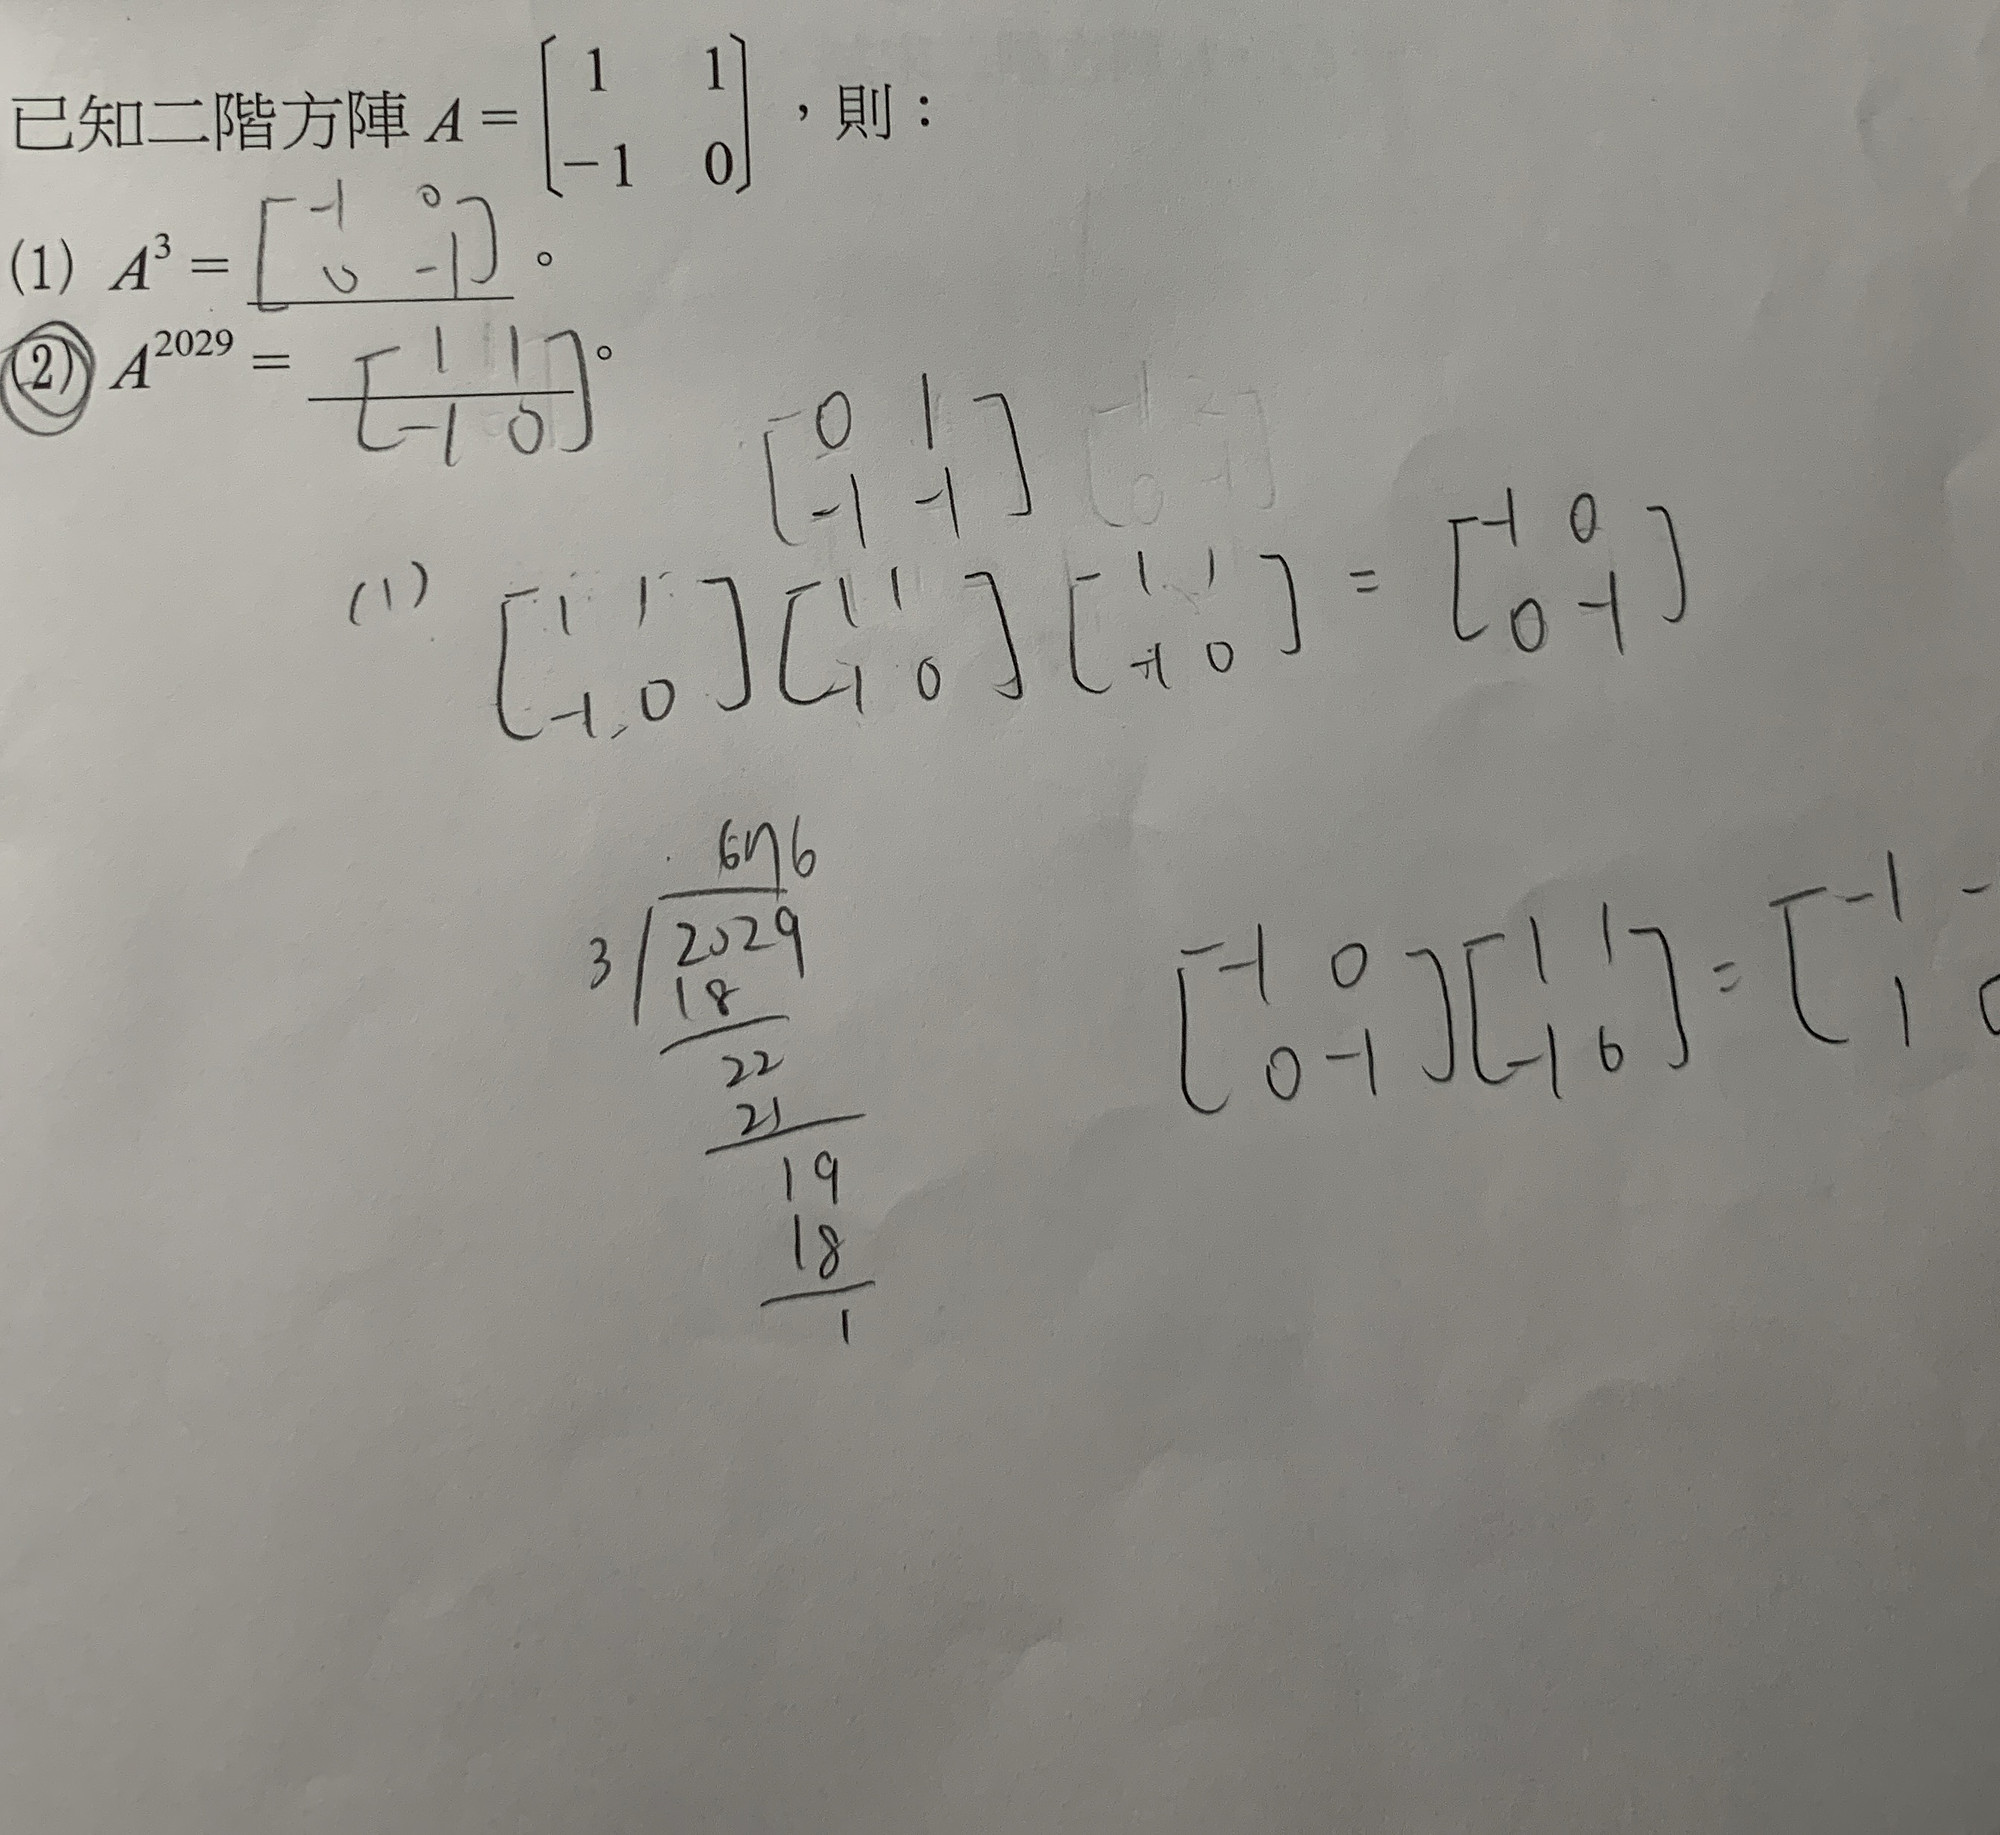 已知二階方陣 A = [1 1; -1 0]，則：
(1) A³ = [-1 0; 0 -1]。
(2) A²⁰²⁹ = [1 1; -1 0]。
[0 1; -1 -1]
(1) [1 1; -1 0] [1 1; -1 0] [1 1; -1 0] = [-1 0; 0 -1]
676
3 2029
18
22
21
19
18
1
[-1 0; 0 -1] [1 1; -1 0] = [-1 -; 1